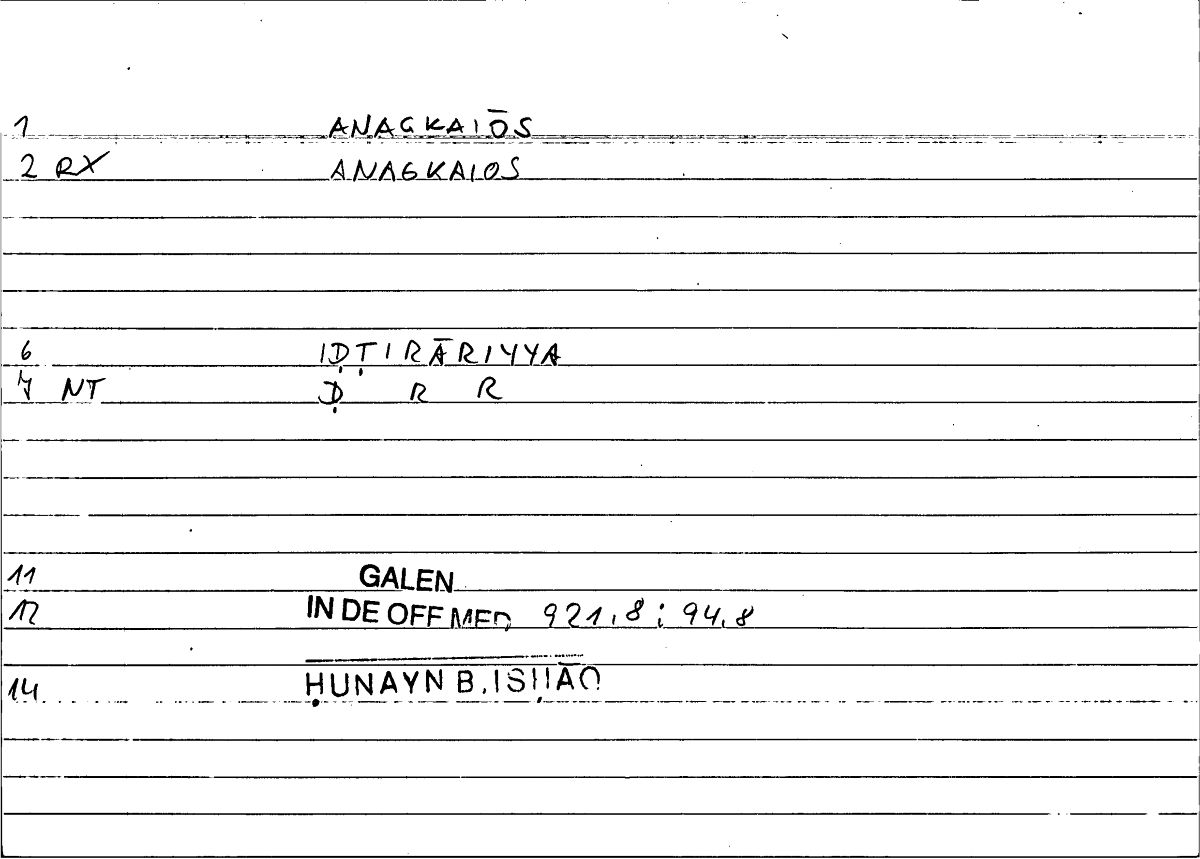 1 ANAGKAIŌS
2 RX ANAGKAIOS
6 IḌṬIRĀRIYYA
7 NT Ḍ R R
11 GALEN
12 IN DE OFF MED 921,8 ; 94,8
14 ḤUNAYN B. ISḤĀQ